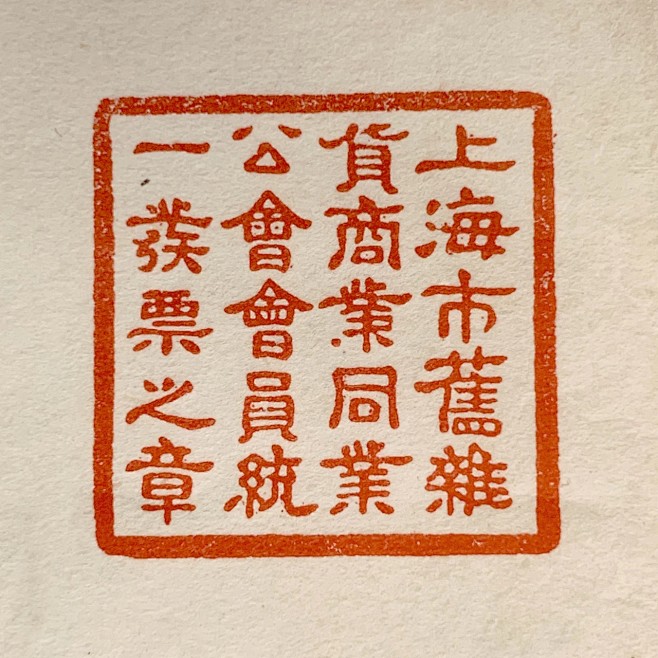 上海市舊雜
貨商業同業
公會會員統
一發票之章